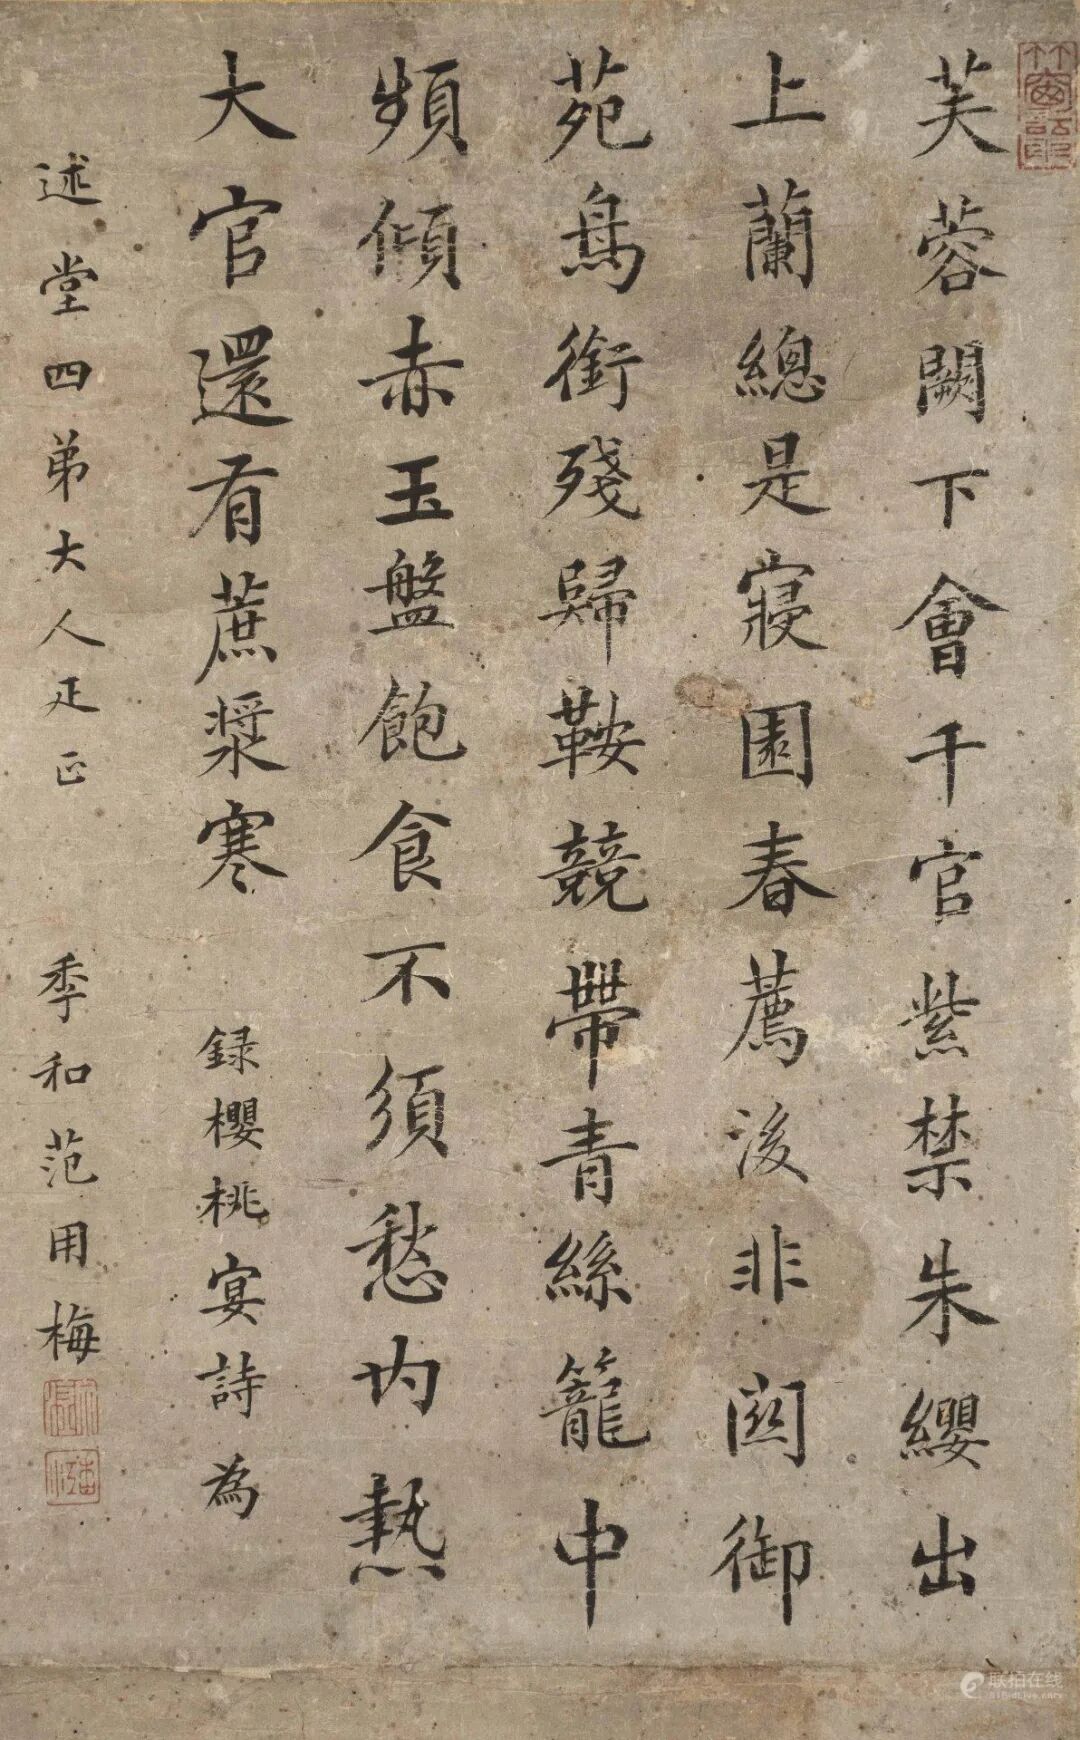 芙蓉闕下會千官紫禁朱纓出
上蘭總是寢園春薦後非關御
苑鳥銜殘歸鞍競帶青絲籠中
頻傾赤玉盤飽食不須愁內熱
大官還有蔗漿寒
錄櫻桃宴詩為
述堂四弟大人疋正
季和范用梅
联拍在线